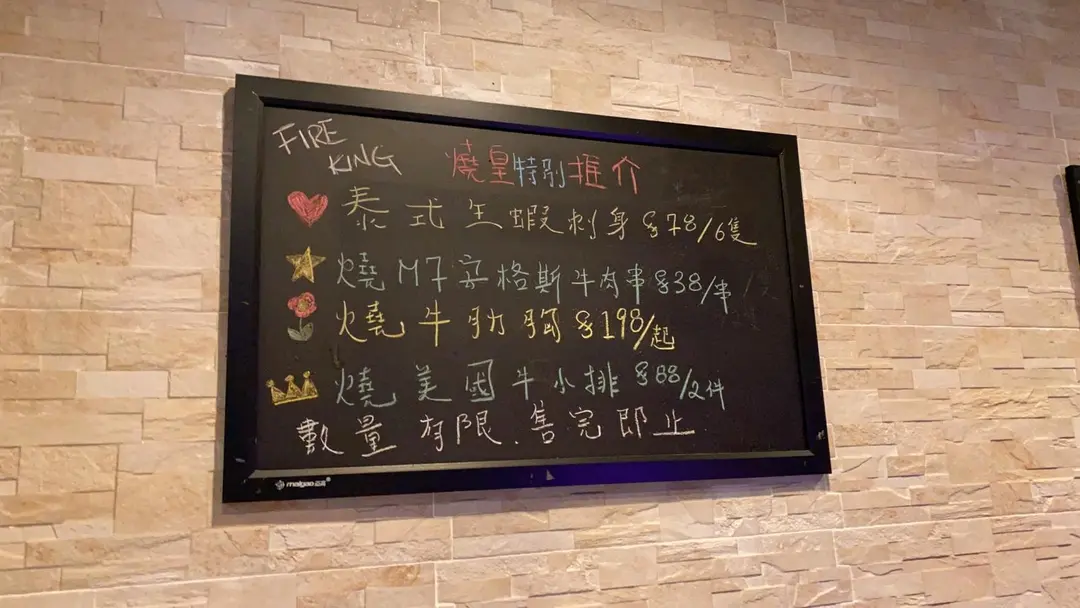 FIRE KING
燒皇特別推介
泰式生蝦刺身 $78/6隻
燒M7安格斯牛肉串 $38/串
燒牛肋胸 $198/起
燒美國牛小排 $88/2件
數量有限.售完即止
maigao